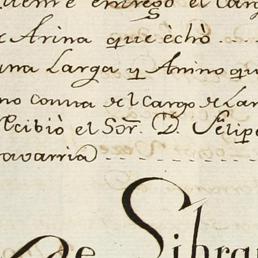 entregó el Carg
e Arina que èchò
una Larga y Anino qu
no consta del Cargo de Lan
Recibiò el Sor. D. Felipe
avarria
De Sibra